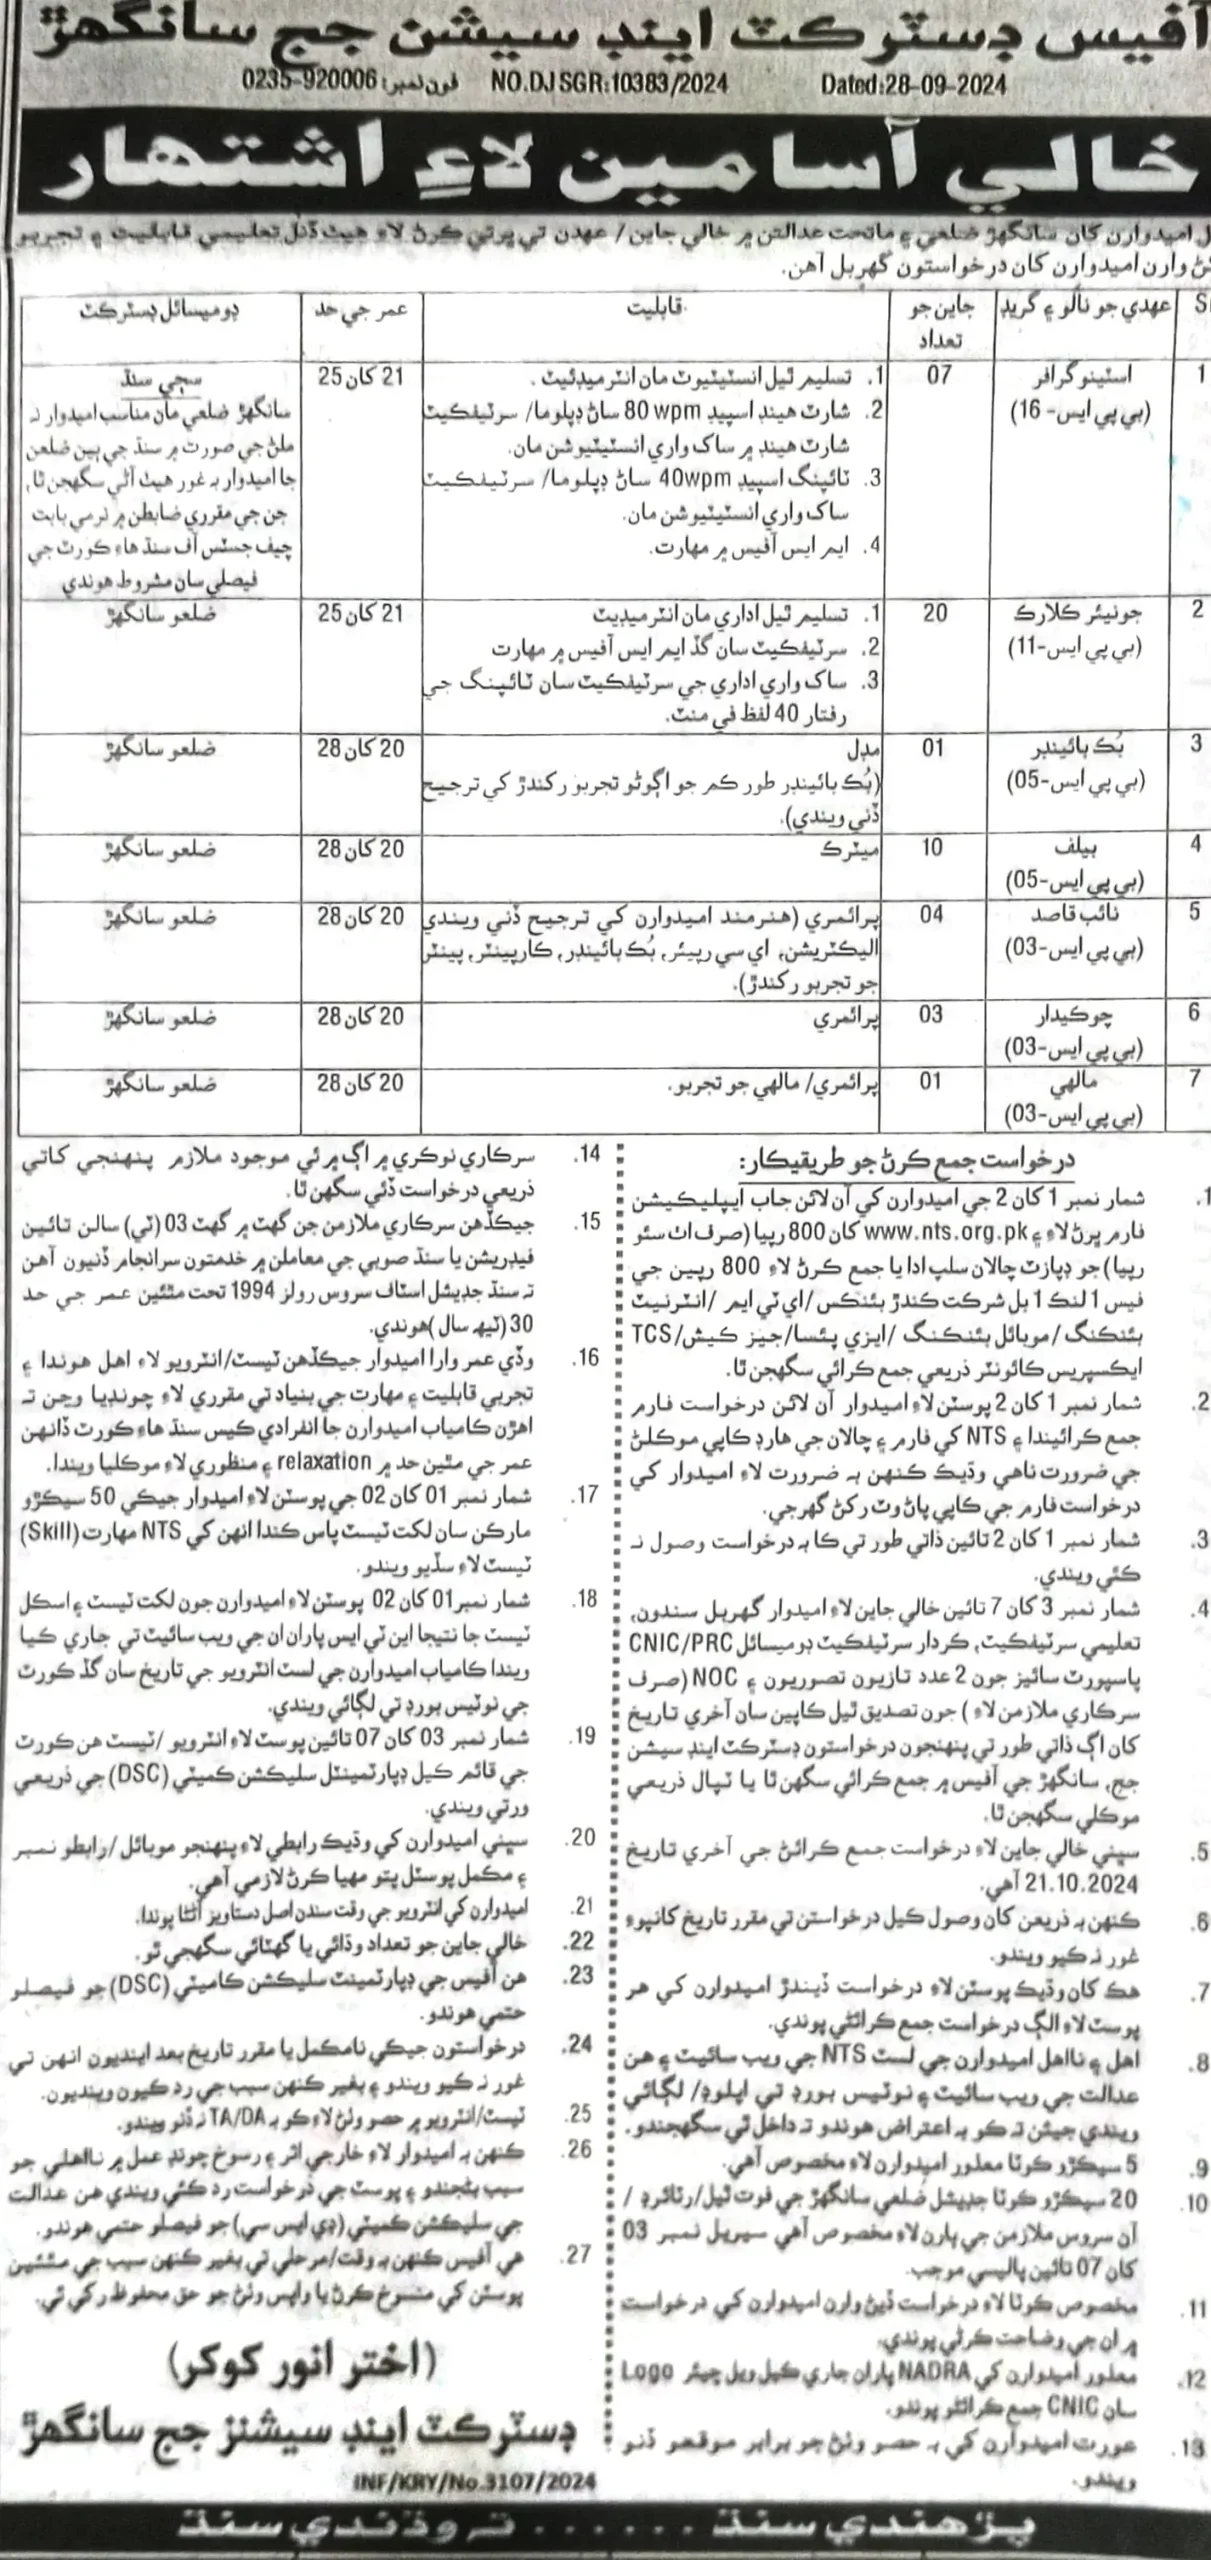 آفيس ڊسٽرڪٽ اينڊ سيشن جج سانگهڙ
فون نمبر: 0235-920006 NO.DJ SGR:10383/2024 Dated:28-09-2024
خالي آسامين لاءِ اشتهار
اميدوارن کان سانگهڙ ضلعي ۽ ماتحت عدالتن ۾ خالي جاين/ عهدن تي ڀرتي ڪرڻ لاءِ هيٺ ڏنل تعليمي قابليت ۽ تجربو
وارن اميدوارن کان درخواستون گهربل آهن.
عهدي جو نالو ۽ گريڊ | جاين جو تعداد | قابليت | عمر جي حد | ڊوميسائل ڊسٽرڪٽ
1 | اسٽينوگرافر (بي پي ايس- 16) | 07 | 1. تسليم ٿيل انسٽيٽيوٽ مان انٽرميڊئيٽ. | 21 کان 25 | سڄي سنڌ
2. شارٽ هينڊ اسپيڊ 80 wpm ساڻ ڊپلوما/ سرٽيفڪيٽ
شارٽ هينڊ ۾ ساک واري انسٽيٽيوشن مان.
3. ٽائپنگ اسپيڊ 40wpm ساڻ ڊپلوما/ سرٽيفڪيٽ
ساک واري انسٽيٽيوشن مان.
4. ايم ايس آفيس ۾ مهارت.
سانگهڙ ضلعي مان مناسب اميدوار نہ
ملڻ جي صورت ۾ سنڌ جي ٻين ضلعن
جا اميدوار بہ غور هيٺ آڻي سگهجن ٿا،
جن جي مقرري ضابطن ۾ نرمي بابت
چيف جسٽس آف سنڌ هاءِ ڪورٽ جي
فيصلي سان مشروط هوندي
2 | جونيئر ڪلارڪ (بي پي ايس-11) | 20 | 1. تسليم ٿيل اداري مان انٽرميڊيٽ | 21 کان 25 | ضلعو سانگهڙ
2. سرٽيفڪيٽ سان گڏ ايم ايس آفيس ۾ مهارت
3. ساک واري اداري جي سرٽيفڪيٽ سان ٽائپنگ جي
رفتار 40 لفظ في منٽ.
3 | بُڪ بائينڊر (بي پي ايس-05) | 01 | مڊل | 20 کان 28 | ضلعو سانگهڙ
(بُڪ بائينڊر طور ڪم جو اڳوڻو تجربو رکندڙ کي ترجيح
ڏني ويندي).
4 | بيلف (بي پي ايس-05) | 10 | ميٽرڪ | 20 کان 28 | ضلعو سانگهڙ
5 | نائب قاصد (بي پي ايس-03) | 04 | پرائمري (هنرمند اميدوارن کي ترجيح ڏني ويندي | 20 کان 28 | ضلعو سانگهڙ
اليڪٽريشن، اي سي رپيئر، بُڪ بائينڊر، ڪارپينٽر، پينٽر
جو تجربو رکندڙ).
6 | چوڪيدار (بي پي ايس-03) | 03 | پرائمري | 20 کان 28 | ضلعو سانگهڙ
7 | مالهي (بي پي ايس-03) | 01 | پرائمري/ مالهي جو تجربو. | 20 کان 28 | ضلعو سانگهڙ
درخواست جمع ڪرڻ جو طريقيڪار:
1. شمار نمبر 1 کان 2 جي اميدوارن کي آن لائن جاب ايپليڪيشن
فارم ڀرڻ لاءِ ۽ www.nts.org.pk کان 800 رپيا (صرف اٺ سئو
رپيا) جو ڊپازٽ چالان سلپ ادا يا جمع ڪرڻ لاءِ 800 رپين جي
فيس 1 لنڪ 1 بل شرڪت ڪندڙ بئنڪس/اي ٽي ايم /انٽرنيٽ
بئنڪنگ/ موبائل بئنڪنگ /ايزي پئسا/ جيز ڪيش/TCS
ايڪسپريس ڪائونٽر ذريعي جمع ڪرائي سگهجن ٿا.
2. شمار نمبر 1 کان 2 پوسٽن لاءِ اميدوار آن لائن درخواست فارم
جمع ڪرائيندا ۽ NTS کي فارم ۽ چالان جي هارڊ ڪاپي موڪلڻ
جي ضرورت ناهي وڌيڪ ڪنهن بہ ضرورت لاءِ اميدوار کي
درخواست فارم جي ڪاپي پاڻ وٽ رکڻ گهرجي.
3. شمار نمبر 1 کان 2 تائين ذاتي طور تي ڪا بہ درخواست وصول نہ
ڪئي ويندي.
4. شمار نمبر 3 کان 7 تائين خالي جاين لاءِ اميدوار گهربل سندون،
تعليمي سرٽيفڪيٽ، ڪردار سرٽيفڪيٽ ڊوميسائل CNIC/PRC
پاسپورٽ سائيز جون 2 عدد تازيون تصويرون ۽ NOC (صرف
سرڪاري ملازمن لاءِ ) جون تصديق ٿيل ڪاپين سان آخري تاريخ
کان اڳ ذاتي طور تي پنهنجون درخواستون ڊسٽرڪٽ اينڊ سيشن
جج، سانگهڙ جي آفيس ۾ جمع ڪرائي سگهن ٿا يا ٽپال ذريعي
موڪلي سگهجن ٿا.
5. سڀني خالي جاين لاءِ درخواست جمع ڪرائڻ جي آخري تاريخ
21.10.2024 آهي.
6. ڪنهن بہ ذريعن کان وصول ڪيل درخواستن تي مقرر تاريخ کانپوءِ
غور نہ ڪيو ويندو.
7. هڪ کان وڌيڪ پوسٽن لاءِ درخواست ڏيندڙ اميدوارن کي هر
پوسٽ لاءِ الڳ درخواست جمع ڪرائڻي پوندي.
8. اهل ۽ نااهل اميدوارن جي لسٽ NTS جي ويب سائيٽ ۽ هن
عدالت جي ويب سائيٽ ۽ نوٽيس بورڊ تي اپلوڊ/ لڳائي
ويندي جيئن تہ ڪو بہ اعتراض هوندو تہ داخل ٿي سگهجندو.
9. 5 سيڪڙو ڪوٽا معذور اميدوارن لاءِ مخصوص آهي.
10. 20 سيڪڙو ڪوٽا جڊيشل ضلعي سانگهڙ جي فوت ٿيل/رٽائرڊ /
آن سروس ملازمن جي ٻارن لاءِ مخصوص آهي سيريل نمبر 03
کان 07 تائين پاليسي موجب.
11. مخصوص ڪوٽا لاءِ درخواست ڏيڻ وارن اميدوارن کي درخواست
۾ ان جي وضاحت ڪرڻي پوندي.
12. معذور اميدوارن کي NADRA پاران جاري ڪيل ويل چيئر Logo
سان CNIC جمع ڪرائڻو پوندو.
13. عورت اميدوارن کي بہ حصو وٺڻ جو برابر موقعو ڏنو
ويندو.
14. سرڪاري نوڪري ۾ اڳ ۾ ئي موجود ملازم پنهنجي کاتي
ذريعي درخواست ڏئي سگهن ٿا.
15. جيڪڏهن سرڪاري ملازمن جن گهٽ ۾ گهٽ 03 (ٽي) سالن تائين
فيڊريشن يا سنڌ صوبي جي معاملن ۾ خدمتون سرانجام ڏنيون آهن
تہ سنڌ جڊيشل اسٽاف سروس رولز 1994 تحت مٿئين عمر جي حد
30 (ٽيهہ سال )هوندي.
16. وڏي عمر وارا اميدوار جيڪڏهن ٽيسٽ/انٽرويو لاءِ اهل هوندا ۽
تجربي قابليت ۽ مهارت جي بنياد تي مقرري لاءِ چونڊيا وڃن تہ
اهڙن ڪامياب اميدوارن جا انفرادي ڪيس سنڌ هاءِ ڪورٽ ڏانهن
عمر جي مٿين حد ۾ relaxation ۽ منظوري لاءِ موڪليا ويندا.
17. شمار نمبر 01 کان 02 جي پوسٽن لاءِ اميدوار جيڪي 50 سيڪڙو
مارڪن سان لکت ٽيسٽ پاس ڪندا انهن کي NTS مهارت (Skill)
ٽيسٽ لاءِ سڏيو ويندو.
18. شمار نمبر 01 کان 02 پوسٽن لاءِ اميدوارن جون لکت ٽيسٽ ۽ اسڪل
ٽيسٽ جا نتيجا اين ٽي ايس پاران ان جي ويب سائيٽ تي جاري ڪيا
ويندا ڪامياب اميدوارن جي لسٽ انٽرويو جي تاريخ سان گڏ ڪورٽ
جي نوٽيس بورڊ تي لڳائي ويندي.
19. شمار نمبر 03 کان 07 تائين پوسٽ لاءِ انٽرويو /ٽيسٽ هن ڪورٽ
جي قائم ڪيل ڊپارٽمينٽل سليڪشن ڪميٽي (DSC) جي ذريعي
ورتي ويندي.
20. سڀني اميدوارن کي وڌيڪ رابطي لاءِ پنهنجو موبائل /رابطو نمبر
۽ مڪمل پوسٽل پتو مهيا ڪرڻ لازمي آهي.
21. اميدوارن کي انٽرويو جي وقت سندن اصل دستاويز آڻڻا پوندا.
22. خالي جاين جو تعداد وڌائي يا گهٽائي سگهجي ٿو.
23. هن آفيس جي ڊپارٽمينٽ سليڪشن ڪاميٽي (DSC) جو فيصلو
حتمي هوندو.
24. درخواستون جيڪي نامڪمل يا مقرر تاريخ بعد اينديون انهن تي
غور نہ ڪيو ويندو ۽ بغير ڪنهن سبب جي رد ڪيون وينديون.
25. ٽيسٽ/انٽرويو ۾ حصو وٺڻ لاءِ ڪو بہ TA/DA نہ ڏنو ويندو.
26. ڪنهن بہ اميدوار لاءِ خارجي اثر ۽ رسوخ چونڊ عمل ۾ نااهلي جو
سبب بڻجندو ۽ پوسٽ جي درخواست رد ڪئي ويندي هن عدالت
جي سليڪشن ڪميٽي (ڊي ايس سي) جو فيصلو حتمي هوندو.
27. هي آفيس ڪنهن بہ وقت/مرحلي تي بغير ڪنهن سبب جي مٿئين
پوسٽن کي منسوخ ڪرڻ يا واپس وٺڻ جو حق محفوظ رکي ٿي.
(اختر انور کوکر)
ڊسٽرڪٽ اينڊ سيشنز جج سانگهڙ
INF/KRY/No.3107/2024
پڙهندي سنڌ ...... تہ وڌندي سنڌ